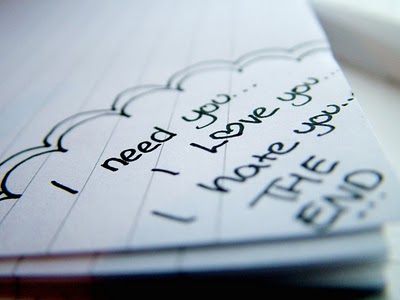 I need you....
I Love you...
I hate you...
THE
END...